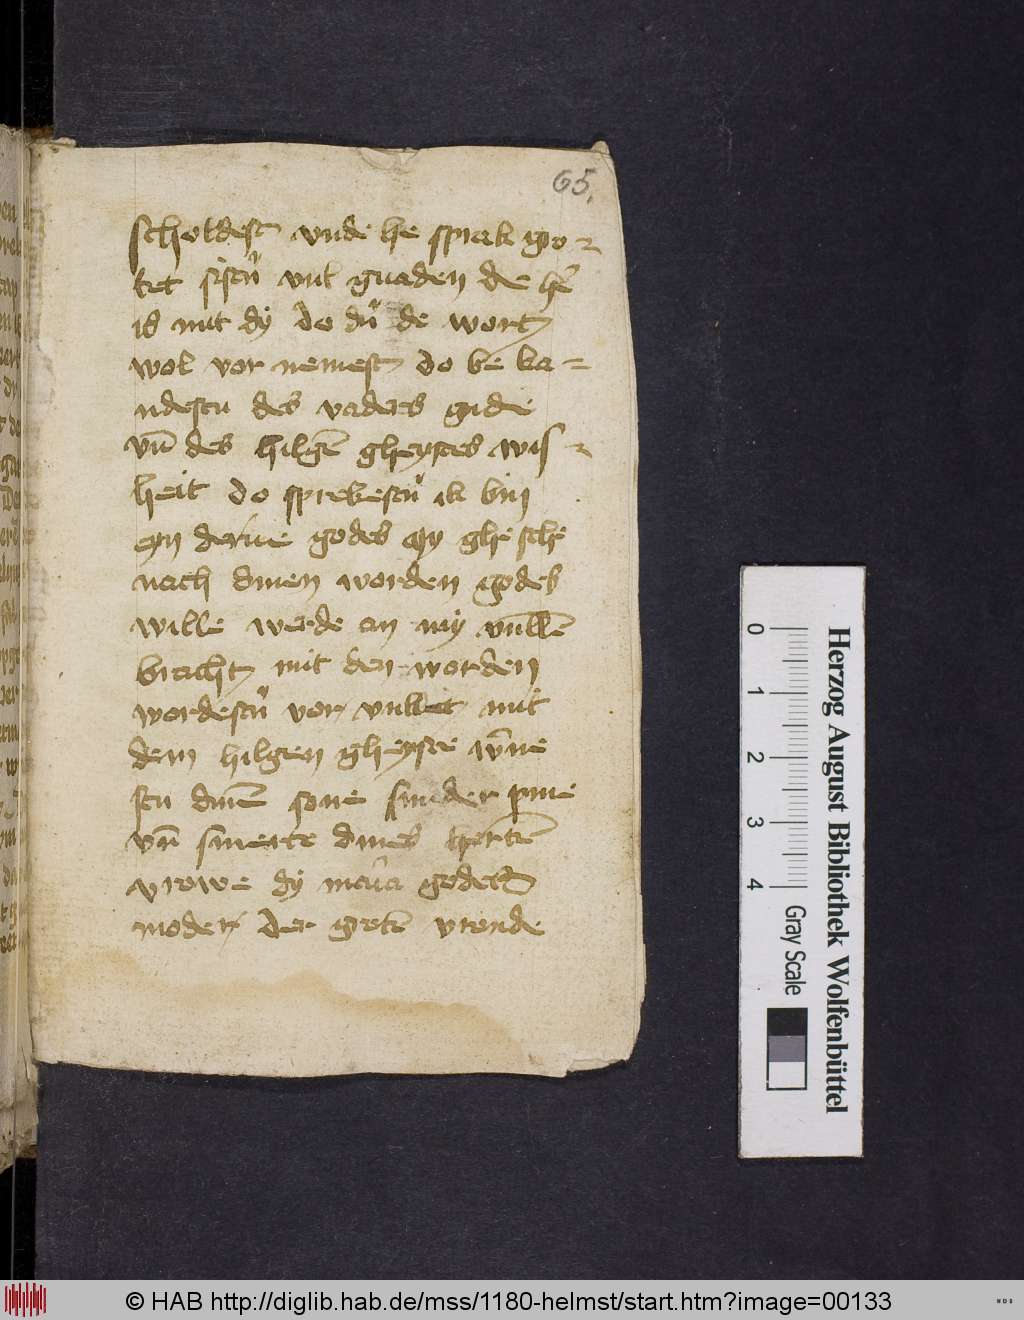 65.
scholdest vnde he sprak gro-
tet sistu vul gnaden de h̄e
is mit dy do du de wort
wol vor nemest do be ka-
ndestu des vaders gude
vn̄ des hilgē gheystes wis-
heit do sprekestu ik bin
eyn derne godes my ghesche
nach dinen worden godes
wille werde an my vullē
bracht mit den worden
wordestu vor vullet mit
dem hilgen gheyste
stu dinē sone sunder pine
vn̄ smerte dines hertē
vrowe dy maria godes
moder der grotē vronde
Herzog August Bibliothek Wolfenbüttel
0 1 2 3 4
Gray Scale
© HAB http://diglib.hab.de/mss/1180-helmst/start.htm?image=00133